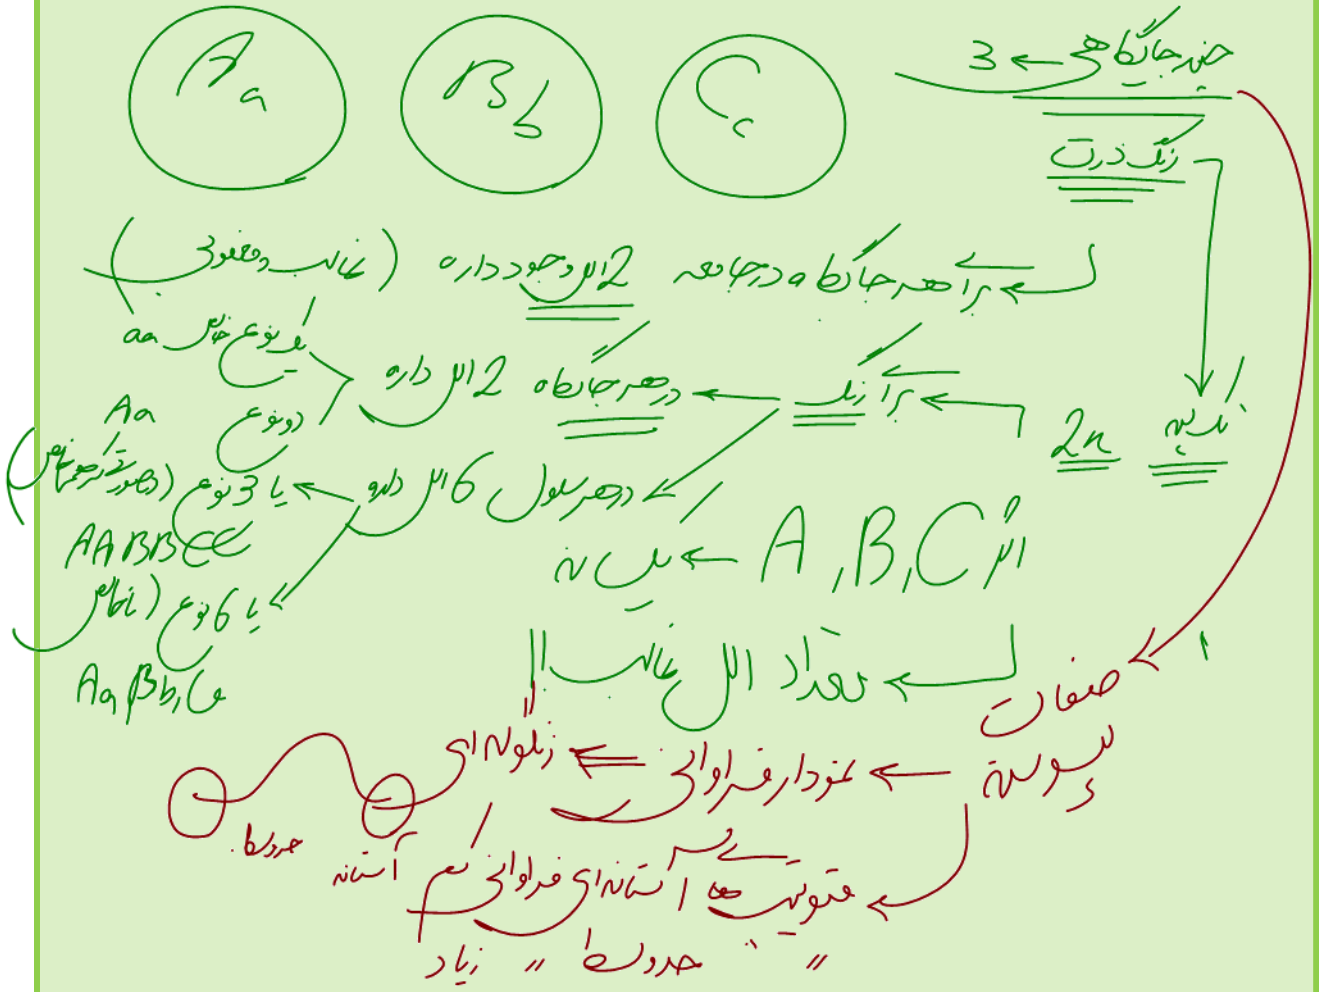 چند جایگاهی ← 3
A a
B b
C c
رنگ ذرت
برا هر جایگاه در جامعه 2 الل وجود داره (غالب و مغلوب)
برا رنگ ← در هر جایگاه 2 الل داره
یک نوع خالص aa
دو نوع Aa
2n
در هر سلول 6 الل داره ← یا 3 نوع (در صورت
AABBCC
یا 6 نوع (ناخالص
AaBb,Cc
الل A, B, C ←
← تعداد الل غالب
صفات پیوسته ← نمودار فراوانی ← زنگوله‌ای
آستانه
حدوسط
فنوتیپ‌ها آستانه‌ای فراوانی کم
〃 حدوسط 〃 زیاد